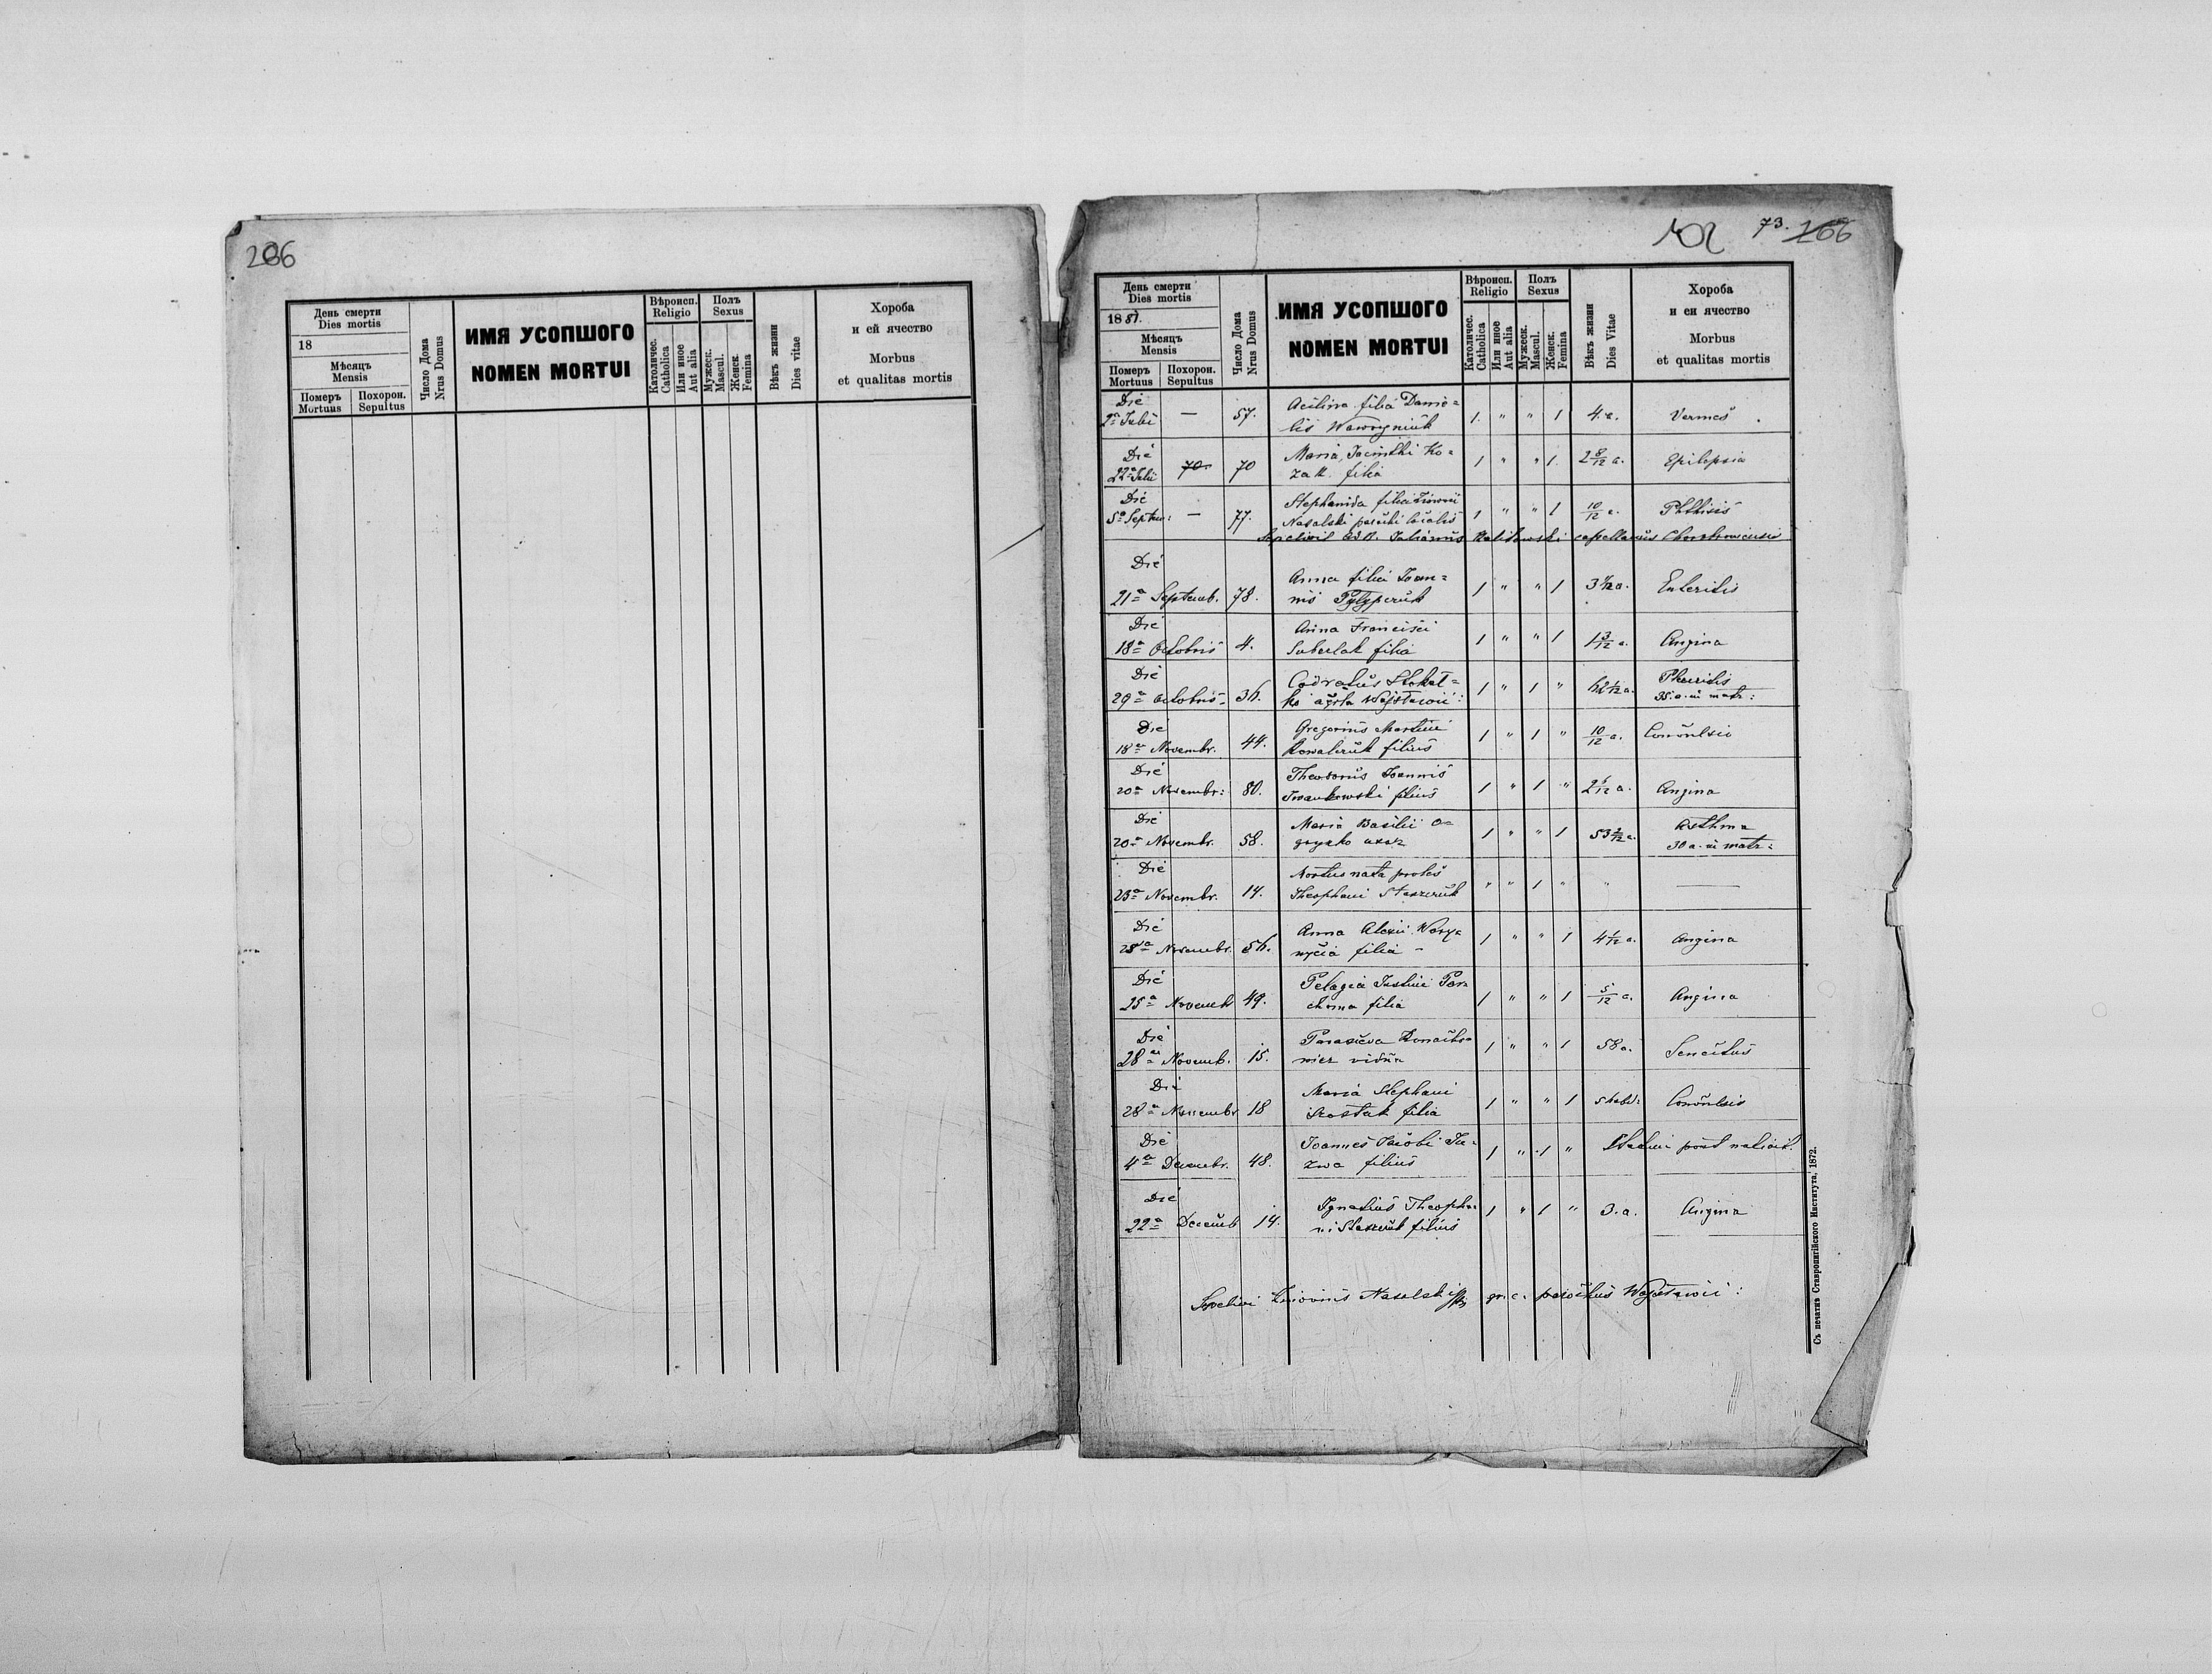 206
День смерти
Dies mortis
18
Мѣсяцъ
Mensis
Померъ
Mortuus
Похорон.
Sepultus
Число Дома
Nrus Domus
ИМЯ УСОПШОГО
NOMEN MORTUI
Вѣроисп.
Religio
Католичес.
Catholica
Или иное
Aut alia
Полъ
Sexus
Мужеск.
Mascul.
Женск.
Femina
Вѣкъ жизни
Dies vitae
Хороба
и ей ячество
Morbus
et qualitas mortis
102 73. 166
День смерти
Dies mortis
1881.
Мѣсяцъ
Mensis
Померъ
Mortuus
Похорон.
Sepultus
Число Дома
Nrus Domus
ИМЯ УСОПШОГО
NOMEN MORTUI
Вѣроисп.
Religio
Католичес.
Catholica
Или иное
Aut alia
Полъ
Sexus
Мужеск.
Mascul.
Женск.
Femina
Вѣкъ жизни
Dies Vitae
Хороба
и еи ячество
Morbus
et qualitas mortis
Die
2a Julii — 57. Acilina filia Danie=
lis Wawryniuk 1. " " 1 4. a. Vermes
Die
22a Julii 70 70 Maria Jacinthi Ko=
zak filia 1 " " 1. 2 8/12 a. Epilepsia
Die
5a Septem: — 77. Stephanida filia Zinovii
Nasalski parochi localis 1 " " 1 10/12 a. Phthisis
Sepelivit capellanus
Die
21a Septemb. 78. Anna filia Joan=
nis Pylyperuk 1 " " 1 3 a. Enteritis
Die
18a Octobris 4. Anna Francisci
filia 1 " " 1 1 3/12 a. Angina
Die
29a Octobris 36. Codratus
1 " 1 " Pleuritis
35. a. in matr:
Die
18a Novembr. 44. Gregorius Martini
Kowaleruk filius 1 " 1 " 10/12 a. Convulsio
Die
20a Novembr: 80. Theodorus Joannis
Iwankowski filius 1 " 1 " 2 a. Angina
Die
20a Novembr. 58. Maria Basilii
uxor 1 " " 1 53 a. Asthma
30 a. in matr:
Die
23a Novembr. 14. Mortus nata proles
Theophani Staszeruk " " 1 " " —
Die
Novembr. 56. Anna Alexii
filia 1 " " 1 4 a. Angina
Die
25a Novemb 49. Pelagia Justini Par=
choma filia 1 " " 1 5/12 a. Angina
Die
28a Novemb. 15. Parasceva
vidua 1 " " 1 58 a. Senectus
Die
28a Novembr 18 Maria Stephani
Szostak filia 1 " " 1 5 hebd: Convulsio
Die
4a Decembr. 48. Joannes Jacobi
filius 1 " 1 " Statim post nativit.
Die
22a Decemb 14. Ignatius Theopha=
ni Staszeruk filius 1 " 1 " 3. a. Angina
Sepelivi Zinovius Nasalski gr. c. parochus
Съ печатнѣ Ставропигійского Института, 1872.